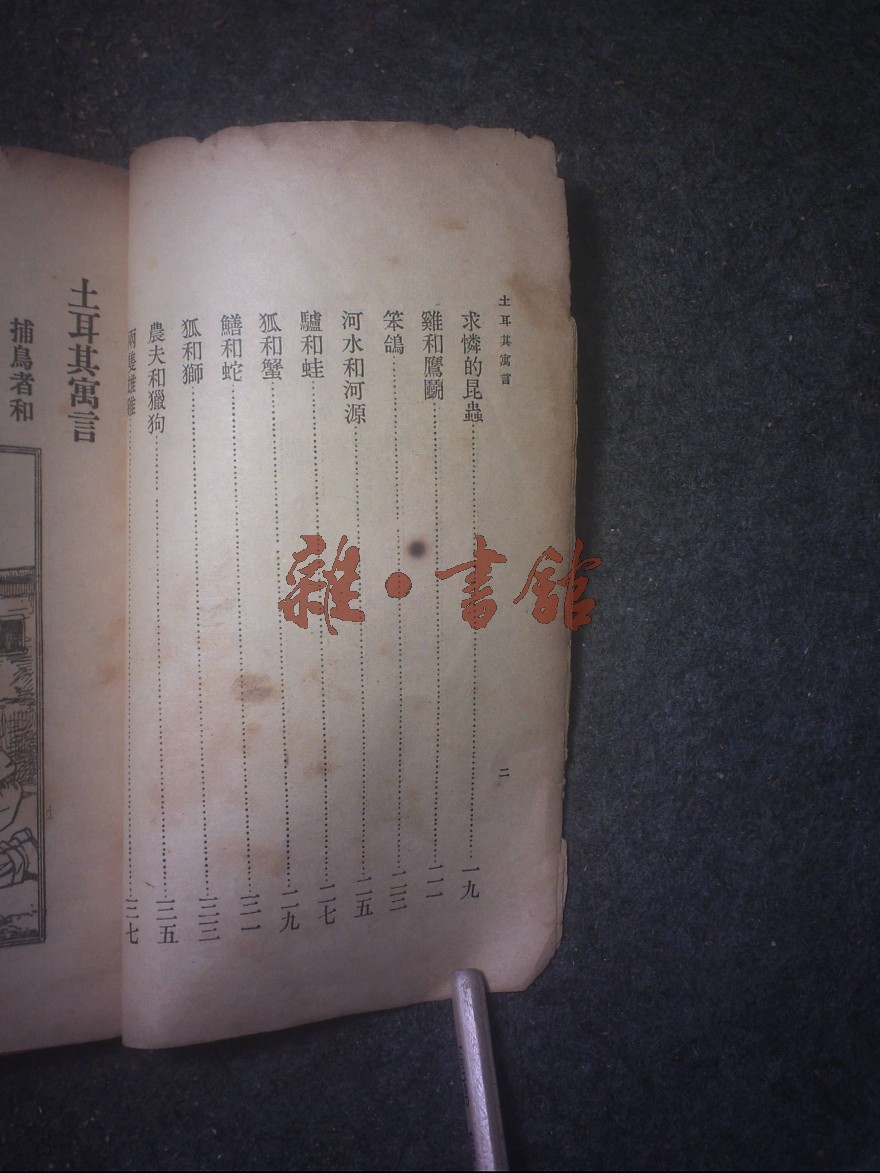 土耳其寓言
二
求憐的昆蟲…一九
雞和鷹鬭…二一
笨鴿…二三
河水和河源…二五
驢和蛙…二七
狐和蟹…二九
鱔和蛇…三一
狐和獅…三三
農夫和獵狗…三五
兩雙雄雞…三七
土耳其寓言
捕鳥者和
雜·書館